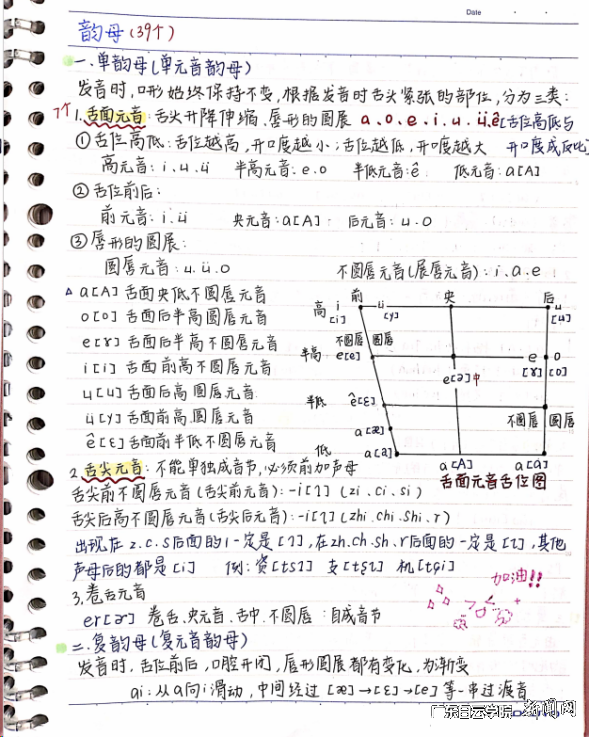 Date
韵母(39个)
一.单韵母(单元音韵母)
发音时,口形始终保持不变,根据发音时舌头紧张的部位,分为三类:
7个
1.舌面元音:舌尖升降伸缩.唇形的圆展 a.o.e.i.u.ü.ê[舌位高低与
①舌位高低:舌位越高,开口度越小;舌位越低,开口度越大 开口度成反比]
高元音:i.u.ü 半高元音:e.o 半低元音:ê 低元音:a[A]
②舌位前后:
前元音:i.ü 央元音:a[A] 后元音:u.o
③唇形的圆展:
圆唇元音:u.ü.o 不圆唇元音(展唇元音):i.a.e
a[A]舌面央低不圆唇元音
o[o]舌面后半高圆唇元音
e[ɤ]舌面后半高不圆唇元音
i[i]舌面前高不圆唇元音
u[u]舌面后高圆唇元音
ü[y]舌面前高圆唇元音
ê[ɛ]舌面前半低不圆唇元音
前 央 后
高 i[i] ü[y] u[u]
不圆唇 圆唇
半高 e[e] e[ɤ] o[o]
e[ə]中
半低 ê[ɛ]
不圆唇 圆唇
a[æ]
低 a[a] a[A] a[ɑ]
舌面元音舌位图
2.舌尖元音:不能单独成音节,必须前加声母
舌尖前不圆唇元音(舌尖前元音):-i[ɿ](zi.ci.si)
舌尖后高不圆唇元音(舌尖后元音):-i[ʅ](zhi.chi.shi.r)
出现在z.c.s后面的i一定是[ɿ],在zh.ch.sh.r后面的一定是[ʅ],其他
声母后的都是[i] 例:资[tsɿ] 支[tʂʅ] 机[tɕi]
3,卷舌元音
加油!!
er[ɚ] 卷舌.央元音.舌中.不圆唇:自成音节
二.复韵母(复元音韵母)
发音时,舌位前后,口腔开闭,唇形圆展都有变化,为渐变
ai:从a向i滑动,中间经过[æ]→[ɛ]→[e]等一串过渡音
广东白云学院 新闻网